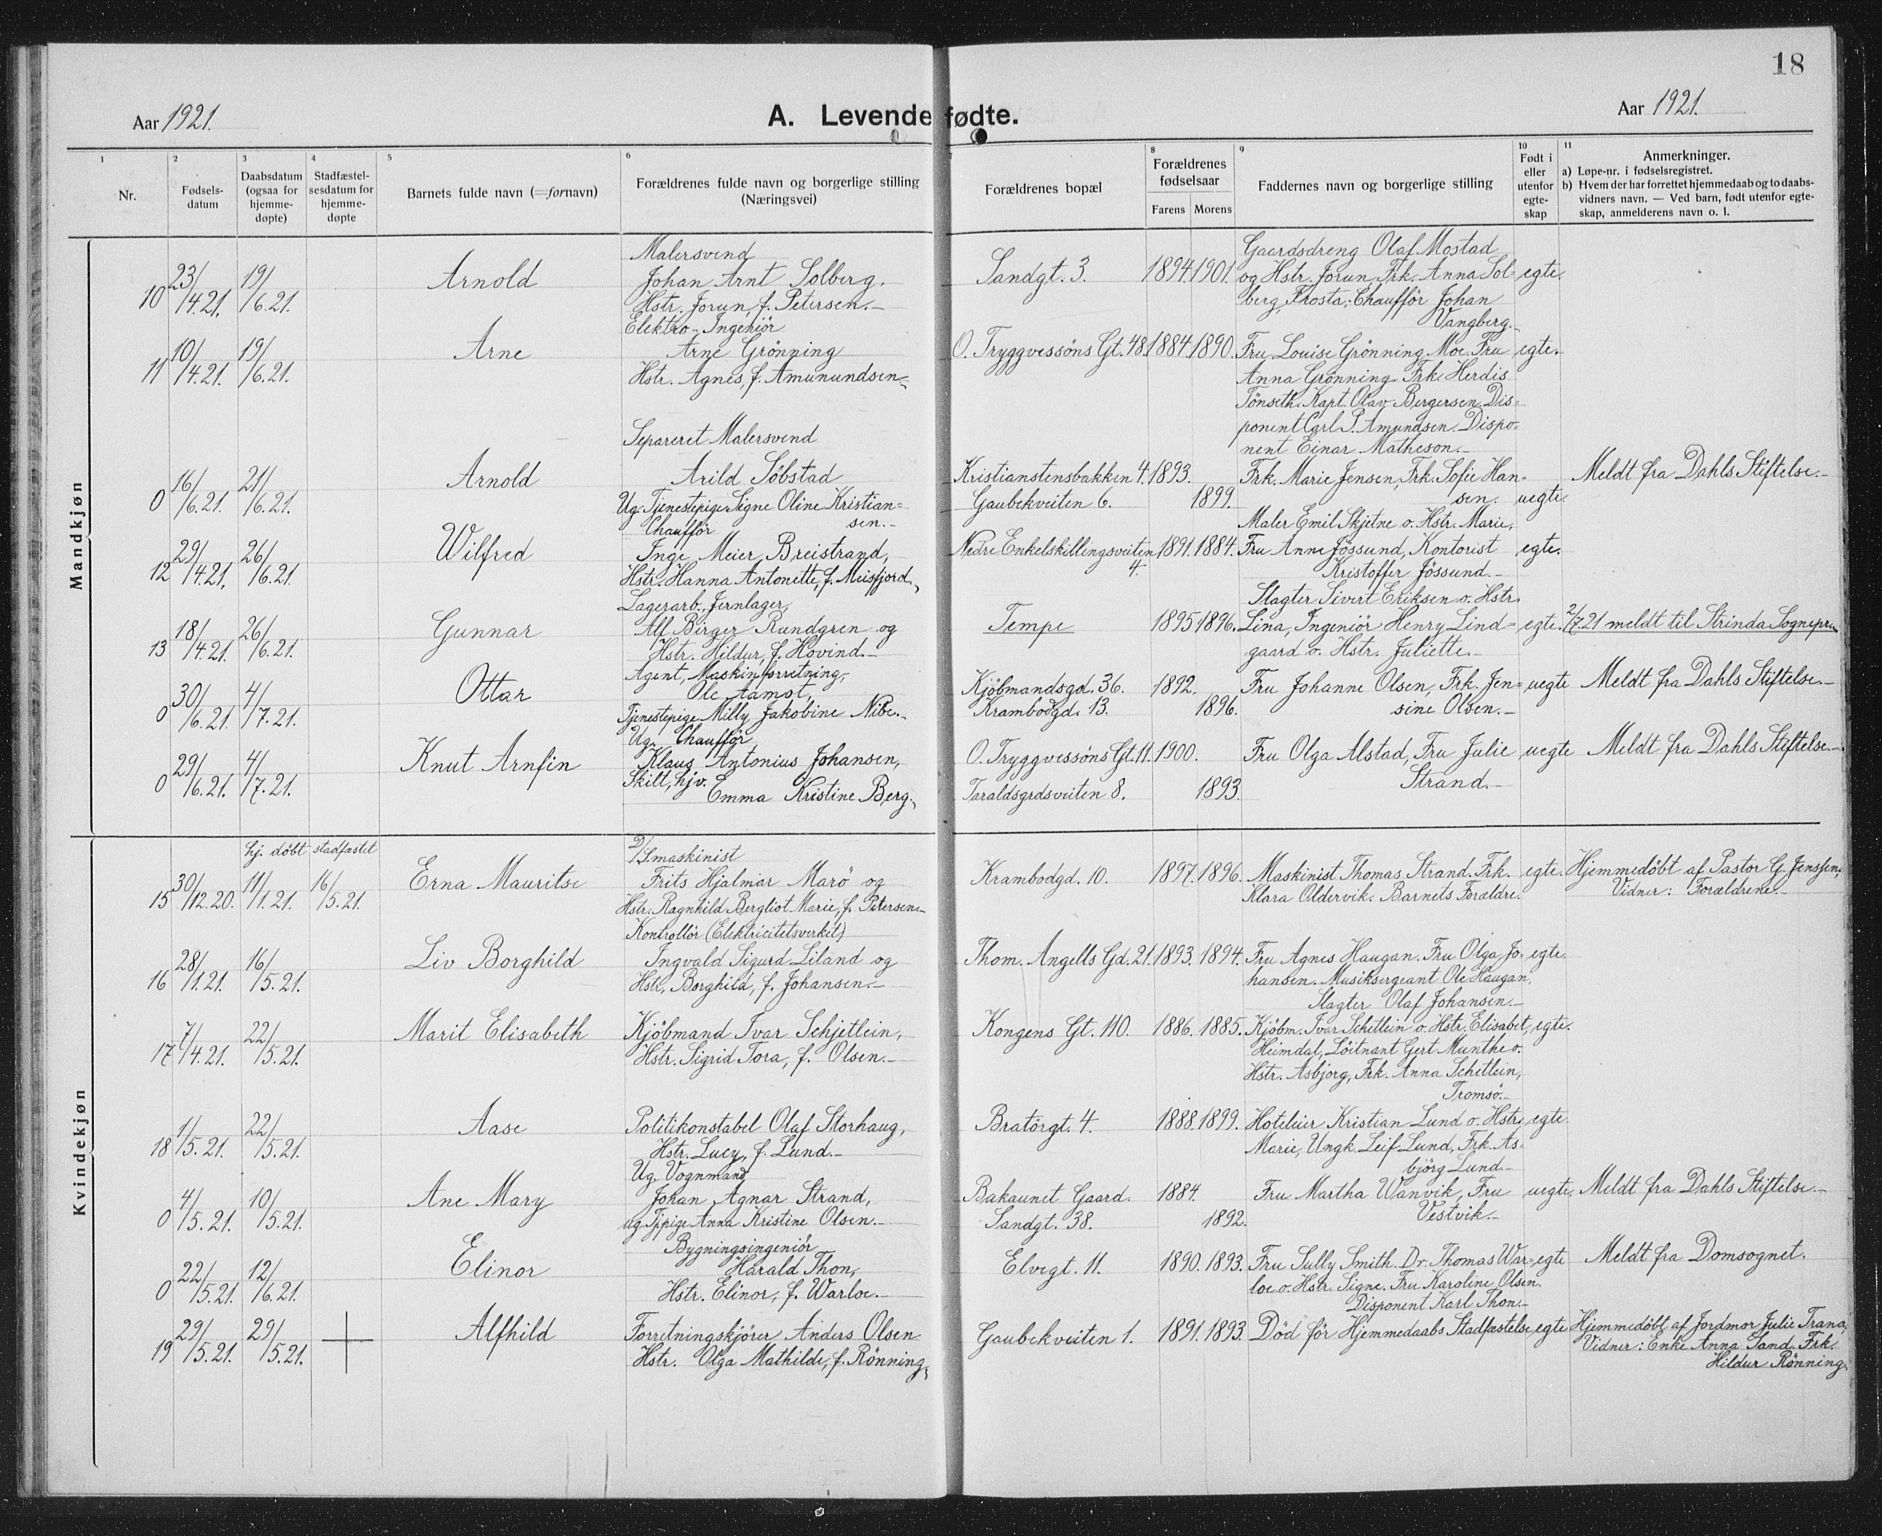 18
Aar 1921.
A. Levendefødte.
Aar 1921.
1 2 3 4 5 6 8 9 10 11
Nr.
Fødsels-
datum
Daabsdatum
(ogsaa for
hjemme-
døpte)
Stadfæstel-
sesdatum for
hjemme-
døpte
Barnets fulde navn (=fornavn)
Forældrenes fulde navn og borgerlige stilling
(Næringsvei)
Forældrenes bopæl
Forældrenes
fødselsaar
Farens Morens
Faddernes navn og borgerlige stilling
Født i
eller
utenfor
egte-
skap
Anmerkninger.
a) Løpe-nr. i fødselsregistret.
b) Hvem der har forrettet hjemmedaab og to daabs-
vidners navn. — Ved barn, født utenfor egte-
skap, anmelderens navn o. l.
Mandkjøn
10 23/4.21. 19/6.21. Arnold
Malersvend
Johan Arnt Solberg.
Hstr. Jorun, f. Petersen.
Sandgt. 3. 1894. 1901.
Gaardsdreng Olaf Mostad
og Hstr. Jorun, Frk. Anna Sol-
berg, Frosta; Chauffør Johan
Vangberg.
egte.
11 10/4.21. 19/6.21. Arne
Elektro-Ingeniør
Arne Grönning
Hstr. Agnes, f. Amunundsen
O. Tryggvessöns Gt. 48. 1884. 1890.
Fru Louise Grönning Moe. Fru
Anna Grönning. Frk. Herdis
Tönseth. Kapt. Olav Bergersen. Dis-
ponent Carl P. Amundsen. Dispo-
nent Einar Matheson.
egte.
0 16/6.21. 21/6.21. Arnold
Separeret Malersvend
Arild Söbstad
Ug. Tjenestepige Signe Oline Kristian-
sen.
Kristianstensbakken 4. 1893.
Gaubekveiten 6. 1899.
Frk. Marie Jensen, Frk. Sofie Han-
sen.
uegte.
Meldt fra Dahls Stiftelse.
12 29/4.21. 26/6.21. Wilfred
Chauffør
Inge Meier Breistrand,
Hstr. Hanna Antonette, f. Meisfjord.
Nedre Enkelskillingsveiten
4. 1891. 1884.
Maler Emil Skjetne o. Hstr. Marie,
Fru Anne Jössund, Kontorist
Kristoffer Jössund.
egte.
13 18/4.21. 26/6.21. Gunnar
Lagerarb., Jernlager,
Alf Birger Rundgren og
Hstr. Hildur, f. Hovind.
Tempe 1895. 1896.
Slagter Sivert Eriksen o. Hstr.
Lina, Ingeniör Henry Lind-
gaard o. Hstr. Juliette.
egte.
2/7 21 meldt til Strinda Sognepr.
0 30/6.21. 4/7.21. Ottar
Agent, Maskinforretning,
Ole Aamot,
Tjenestepige Milly Jakobine Nibe.
Kjöbmandsgd. 36. 1892.
Krambodgd. 13. 1896.
Fru Johanne Olsen, Frk. Jen-
sine Olsen.
uegte
Meldt fra Dahls Stiftelse.
0 29/6.21. 4/7.21. Knut Arnfin
Ug. Chauffør
Klaus Antonius Johansen,
Skilt, hjv.
Emma Kristine Berg.
O. Tryggvessöns Gt. 11. 1900.
Taraldsgrdsveiten 8. 1893.
Fru Olga Alstad, Fru Julie
Strand.
uegte
Meldt fra Dahls Stiftelse.
Kvindekjøn
15 30/12.20. hj. döbt 11/1.21. stadfæstet 16/5.21. Erna Mauritse
D/S.maskinist
Frits Hjalmar Marö og
Hstr. Ragnhild Bergliot Marie, f. Petersen.
Krambodgd. 10. 1897. 1896.
Maskinist Thomas Strand. Frk.
Klara Oldervik. Barnets Forældre.
egte.
Hjemmedöbt af Pastor G. Jenssen,
Vidner: Forældrene.
16 28/1.21. 16/5.21. Liv Borghild
Kontrollör (Elektricitetsverket)
Ingvald Sigurd Liland og
Hstr. Borghild, f. Johansen.
Thom. Angells Gd. 21. 1893. 1894.
Fru Agnes Haugan. Fru Olga Jo-
hansen. Musiksergeant Ole Haugan,
Slagter Olaf Johansen.
egte.
17 7/4.21. 22/5.21. Marit Elisabeth
Kjöbmand Ivar Schjetlein,
Hstr. Sigrid Tora, f. Olsen.
Kongens Gt. 110. 1886. 1885.
Kjöbm. Ivar Schetlein o. Hstr. Elisabet,
Heimdal, Löitnant Gert Munthe o.
Hstr. Asbjorg, Frk. Anna Schetlein,
Tromsö.
egte.
18 1/5.21. 22/5.21. Aase
Politikonstabel Olaf Storhaug,
Hstr. Lucy, f. Lund.
Bratörgt. 4. 1888. 1899.
Hoteleier Kristian Lund o. Hstr.
Marie, Ungk. Leif Lund, Frk. As-
björg Lund.
egte.
0 4/5.21. 10/5.21. Ane Mary
Ug. Vognmand
Johan Agnar Strand,
ug. Tjpige Anna Kristine Olsen.
Bakaunet Gaard. 1884.
Sandgt. 38. 1892.
Fru Martha Wanvik, Fru
Vestvik.
uegte.
Meldt fra Dahls Stiftelse.
0 22/5.21. 12/6.21. Elinor
Bygningsingeniör
Harald Thon,
Hstr. Elinor, f. Warloe.
Elvegt. 11. 1890. 1893.
Fru Sully Smith. Dr. Thomas War-
loe o. Hstr. Signe. Fru Karoline Olsen.
Disponent Karl Thon.
egte
Meldt fra Domsognet.
19 29/5.21. 29/5.21. Alfhild
Forretningskjörer Anders Olsen
Hstr. Olga Mathilde, f. Rönning.
Gaubekveiten 1. 1891. 1893.
Död för Hjemmedaabs Stadfæstelse
egte
Hjemmedöbt af Jordmor Julie Trana,
Vidner: Enke Anna Sand, Frk.
Hildur Rönning.